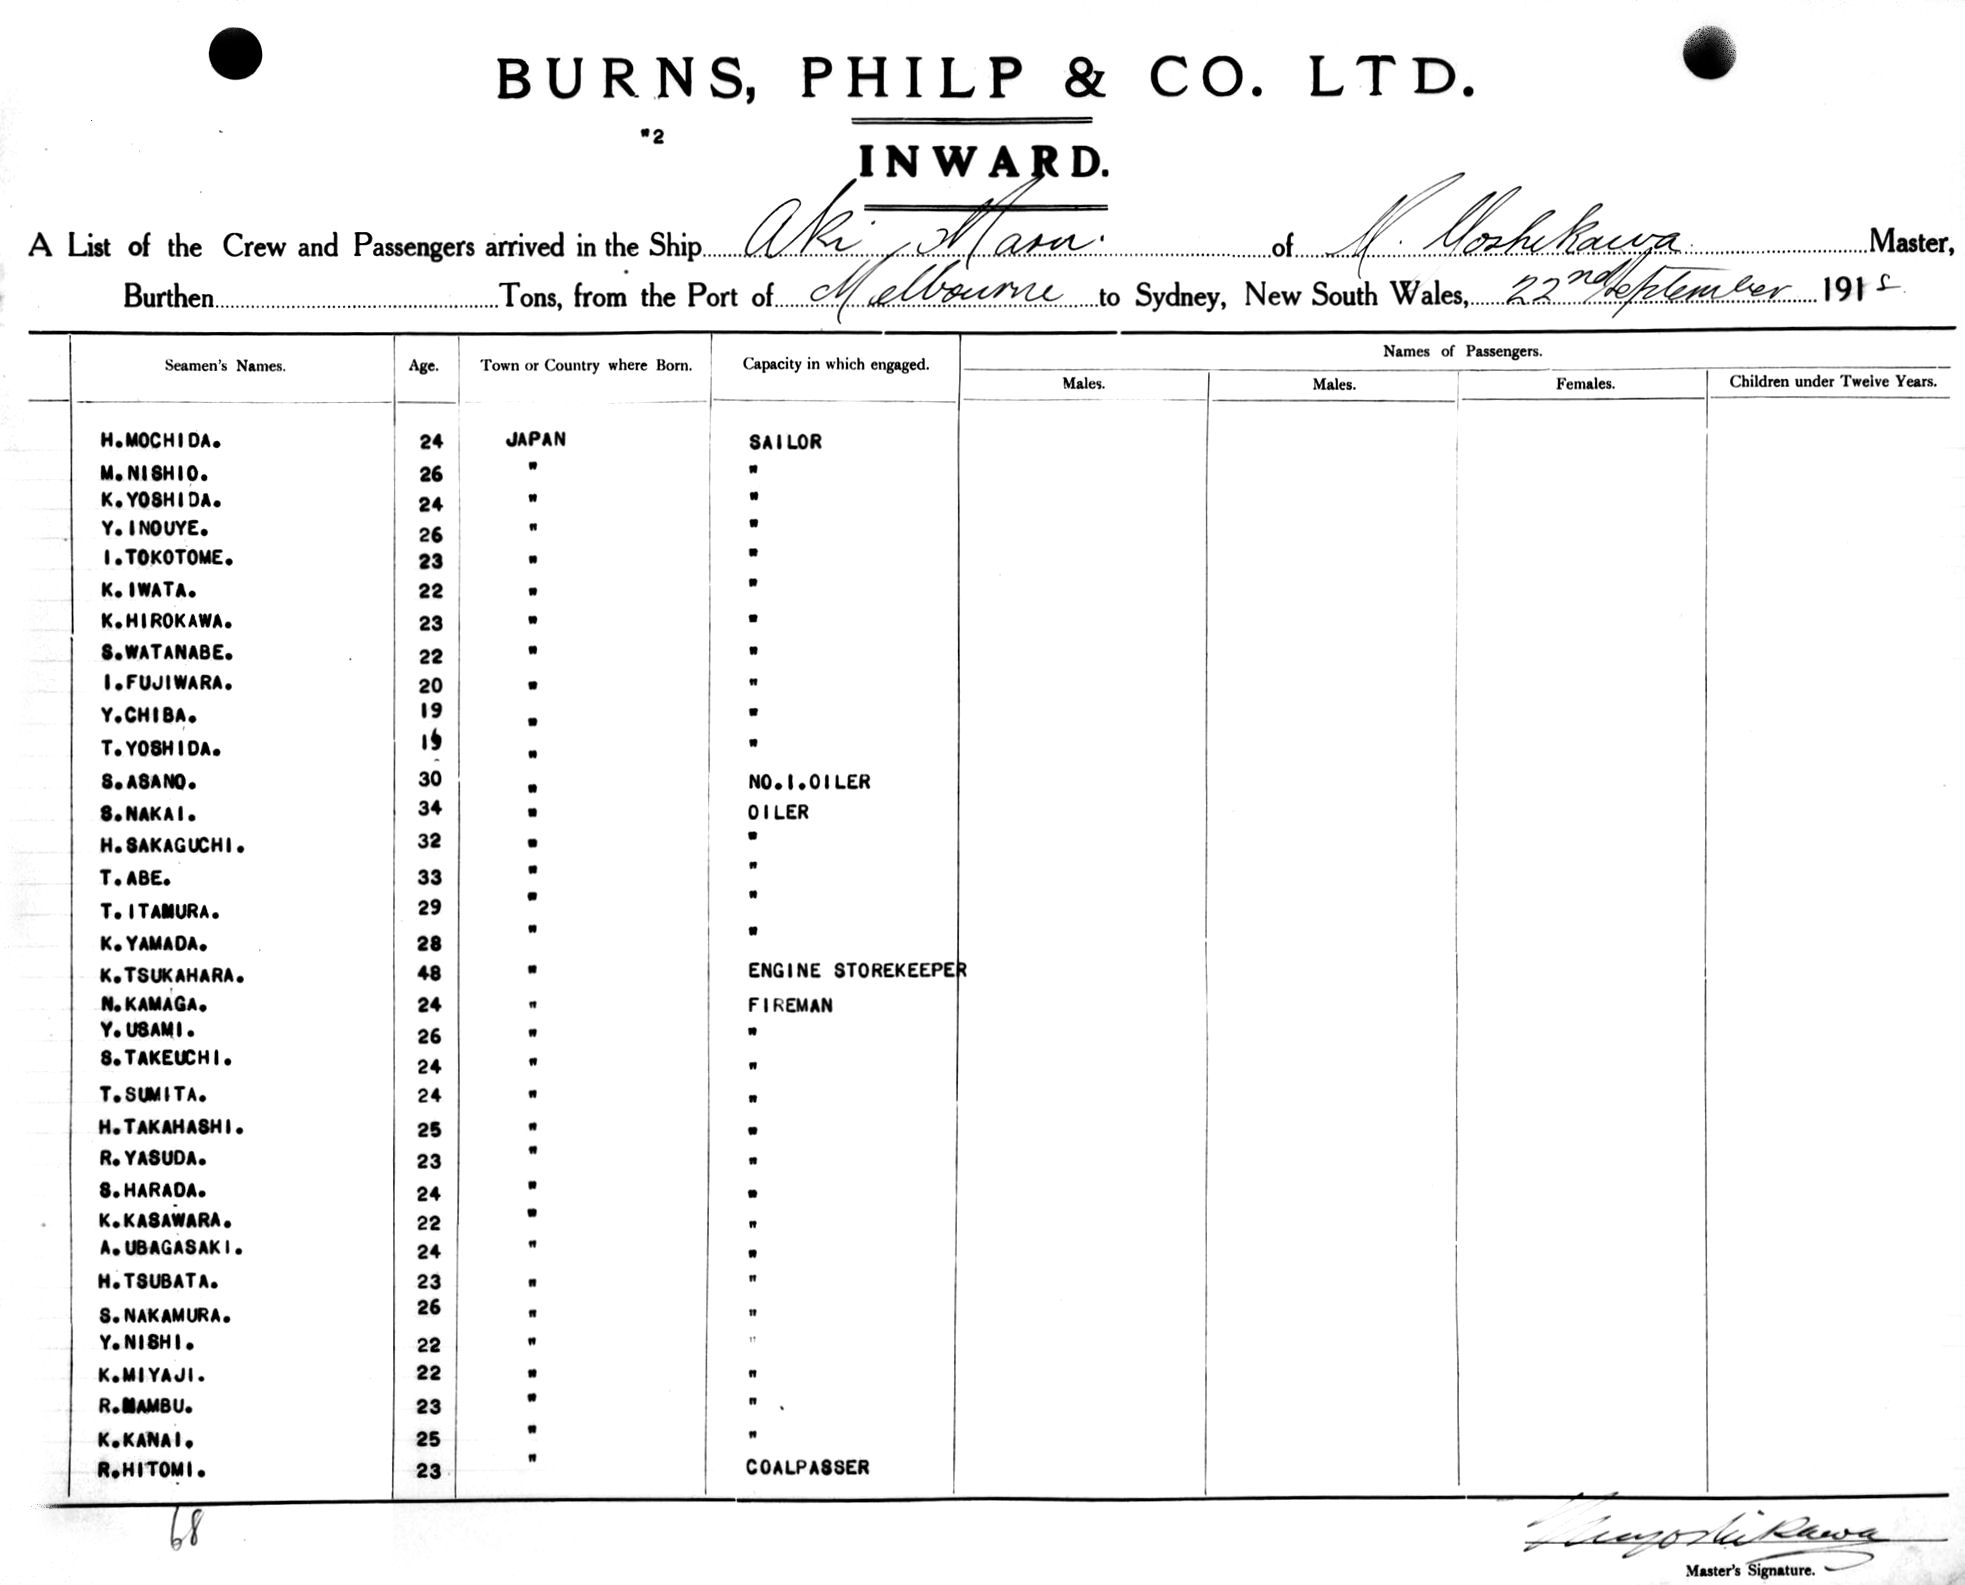 BURNS, PHILP & CO. LTD.
"2
INWARD.
A List of the Crew and Passengers arrived in the Ship Aki Maru. of Yoshikawa Master,
Burthen Tons, from the Port of Melbourne to Sydney, New South Wales, 22nd September 1915
Names of Passengers.
Seamen's Names. Age. Town or Country where Born. Capacity in which engaged. Males. Males. Females. Children under Twelve Years.
H.MOCHIDA. 24 JAPAN SAILOR
M.NISHIO. 26 " "
K.YOSHIDA. 24 " "
Y.INOUYE. 26 " "
I.TOKOTOME. 23 " "
K.IWATA. 22 " "
K.HIROKAWA. 23 " "
S.WATANABE. 22 " "
I.FUJIWARA. 20 " "
Y.CHIBA. 19 " "
T.YOSHIDA. 19 " "
S.ASANO. 30 " NO.I.OILER
S.NAKAI. 34 " OILER
H.SAKAGUCHI. 32 " "
T.ABE. 33 " "
T.ITAMURA. 29 " "
K.YAMADA. 28 " "
K.TSUKAHARA. 48 " ENGINE STOREKEEPER
N.KAMAGA. 24 " FIREMAN
Y.USAMI. 26 " "
S.TAKEUCHI. 24 " "
T.SUMITA. 24 " "
H.TAKAHASHI. 25 " "
R.YASUDA. 23 " "
S.HARADA. 24 " "
K.KASAWARA. 22 " "
A.UBAGASAKI. 24 " "
H.TSUBATA. 23 " "
S.NAKAMURA. 26 " "
Y.NISHI. 22 " "
K.MIYAJI. 22 " "
R.NAMBU. 23 " "
K.KANAI. 25 " "
R.HITOMI. 23 " COALPASSER
68
Master's Signature.